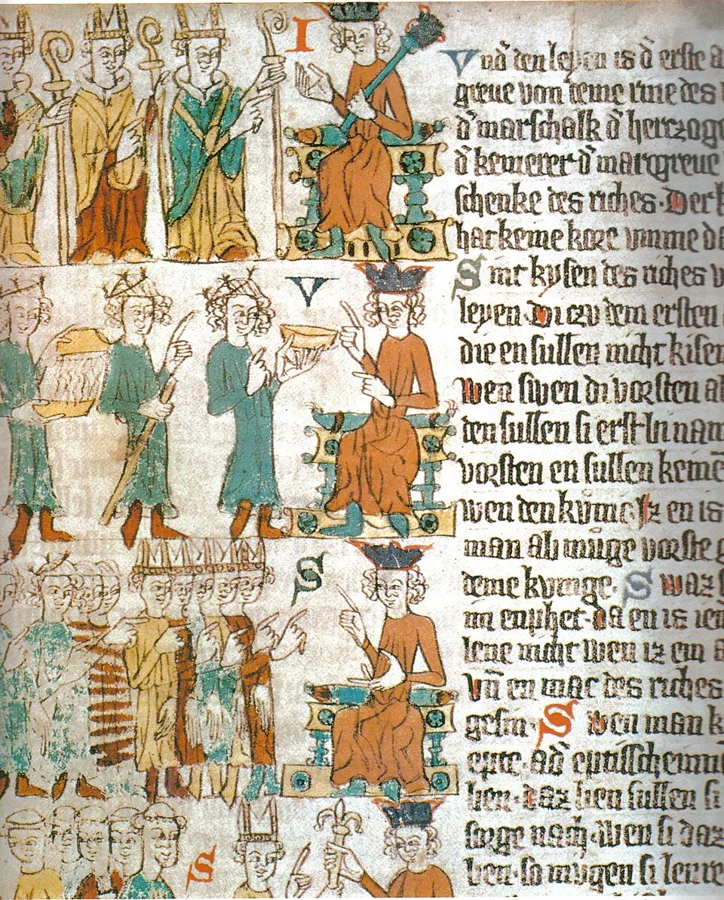 I
V
S
S
Vnd̄ den leyen is d̄ erste a
greue von deme rine des
d̄ marschalk d̄ herczog
d̄ kemerer d̄ marcgreue
schenke des riches. Der
hat keine kore vmme da
Sint kysen des riches v
leyen. Di czu dem ersten
die en sullen nicht kisen
Wen swen di vorsten al
den sullen si erst bi nam
vorsten en sullen keinē
wen den kunig. Iz en is
man ab muge vorste
deme kunige. Swaz
im enphet. da en is ien
lene nicht wen iz ein a
Vn̄ en mac des riches
gesin. Swen man k
epte. ad̄ eptisschennin
ben. daz lien sullen si
sorge nach. wen si daz
ben. so mugen si lenre